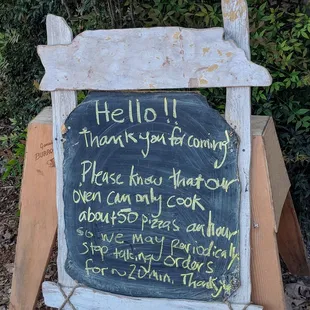 Hello!!
Thank you for coming!
Please know that our
oven can only cook
about 50 pizza's an hour
so we may periodically
stop taking orders
for ~20 min. Thanks!